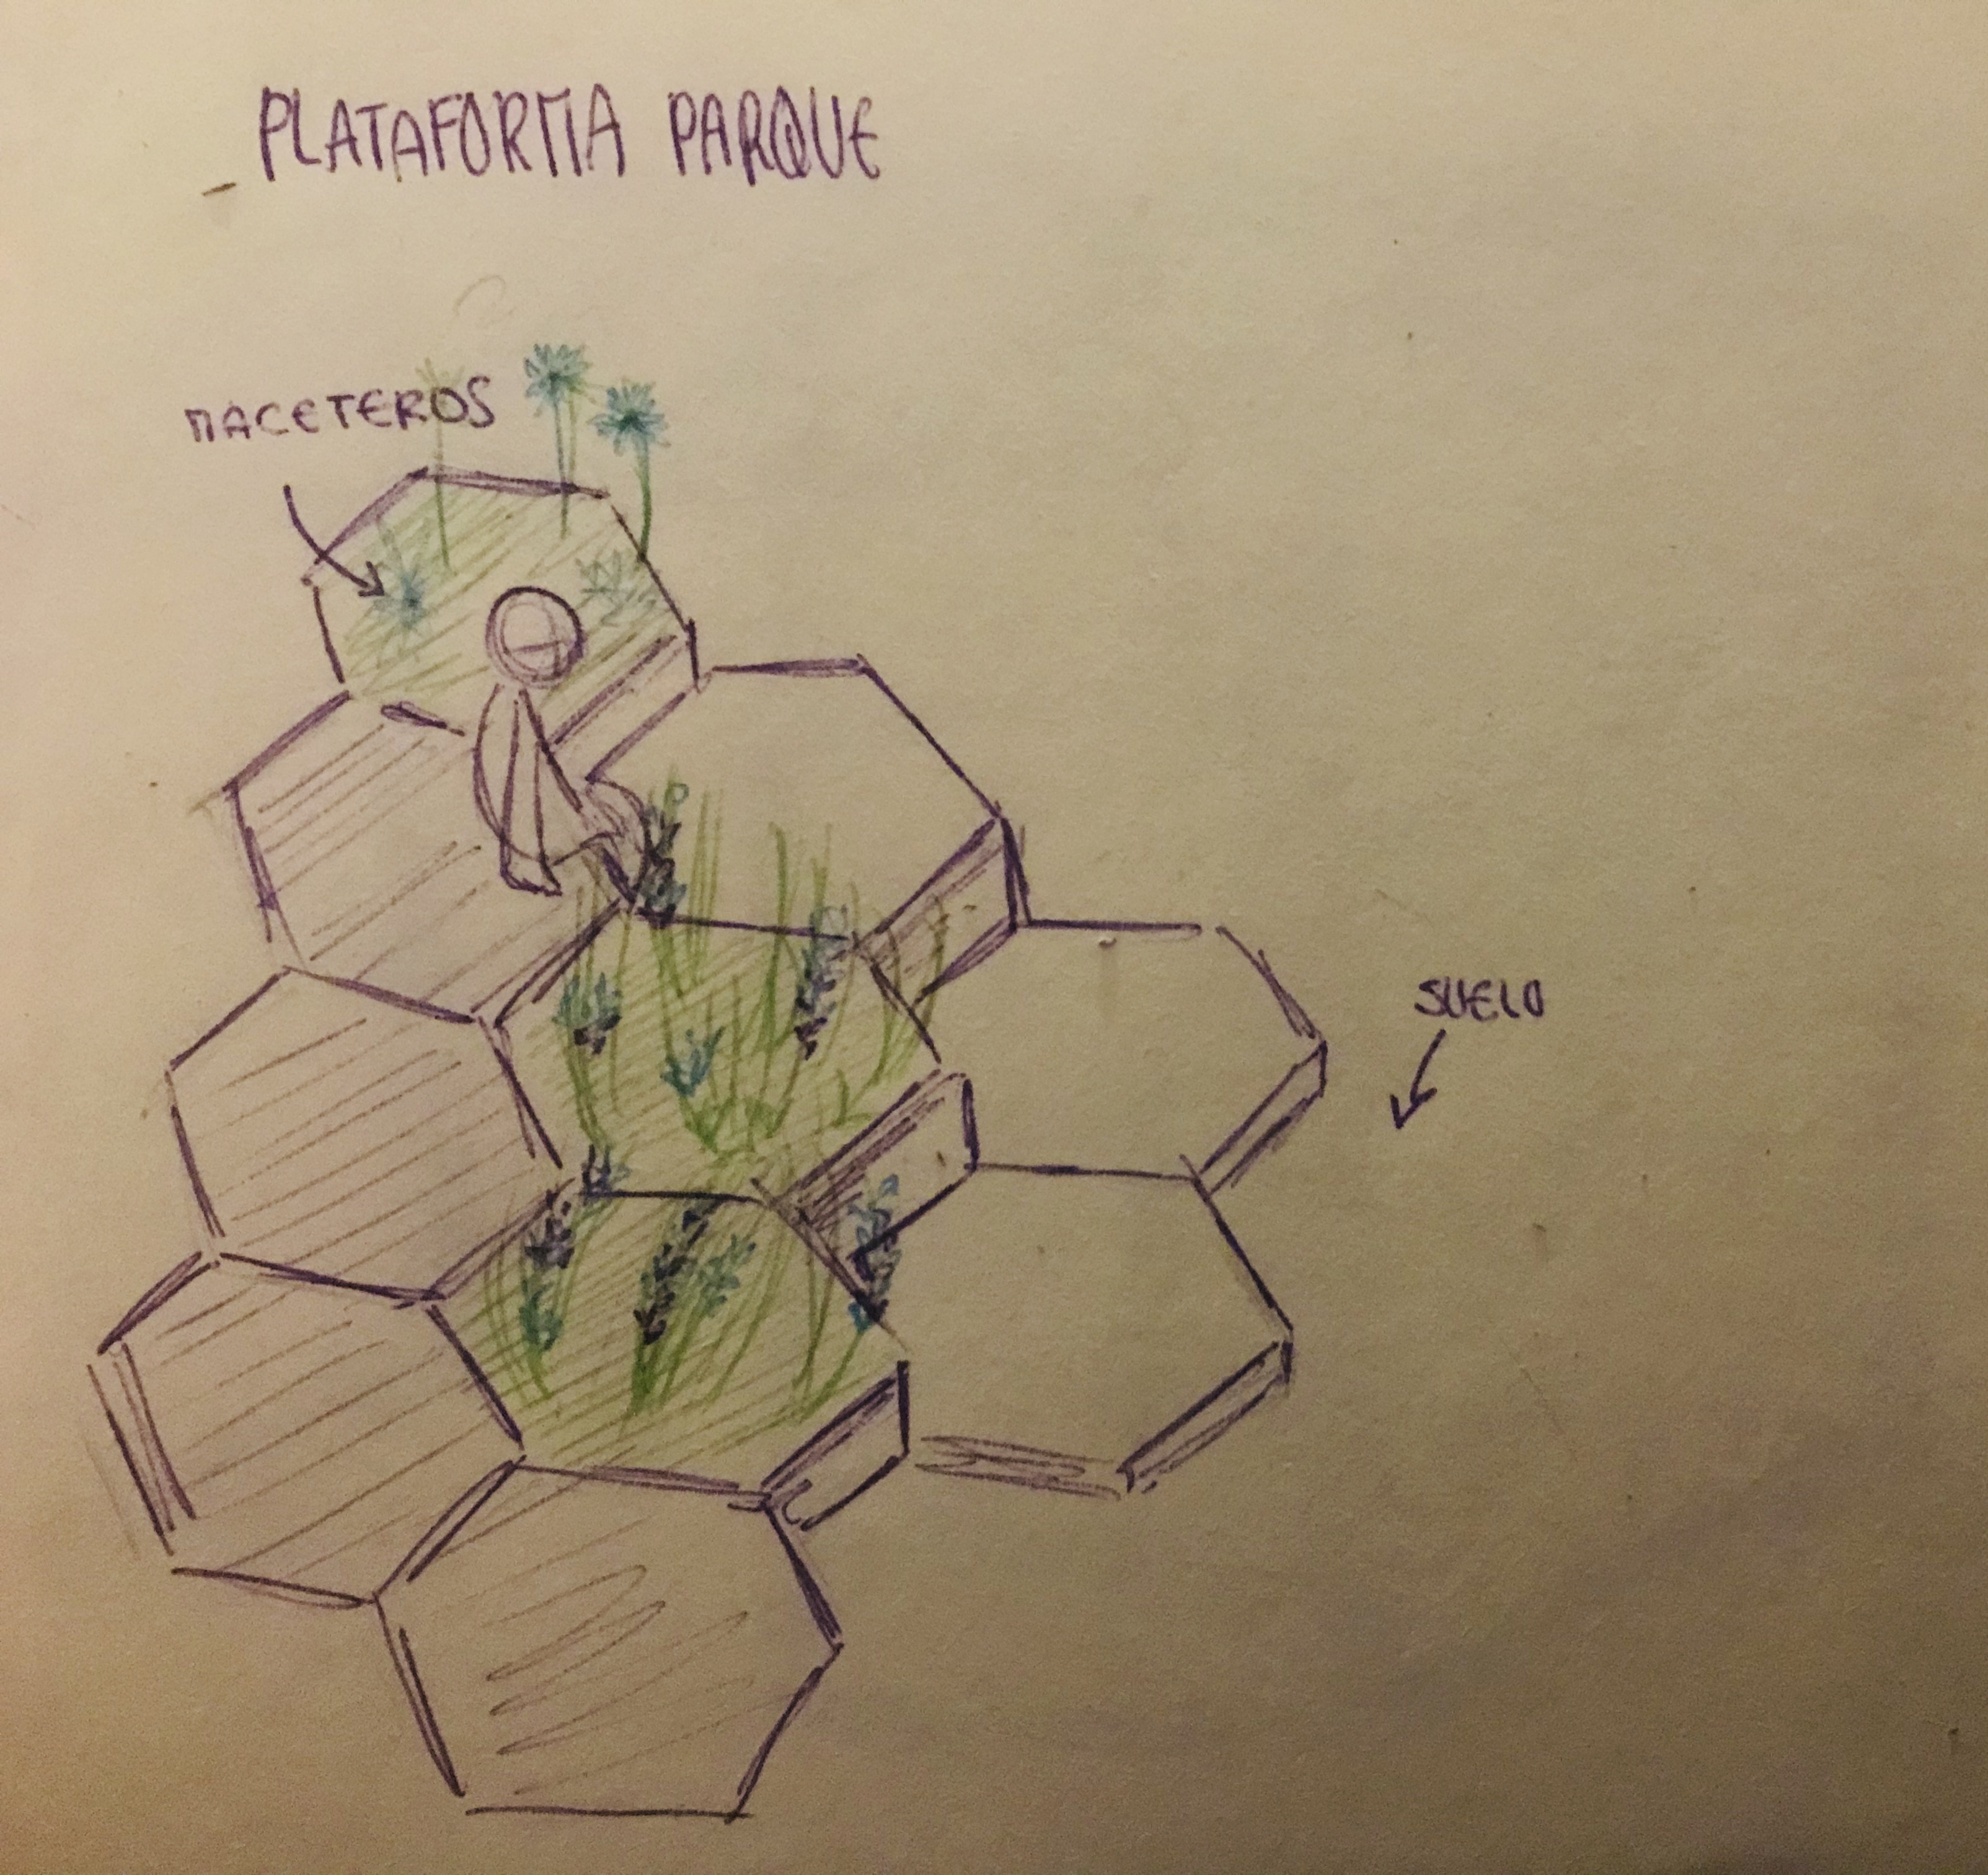 PLATAFORMA PARQUE
MACETEROS
SUELO